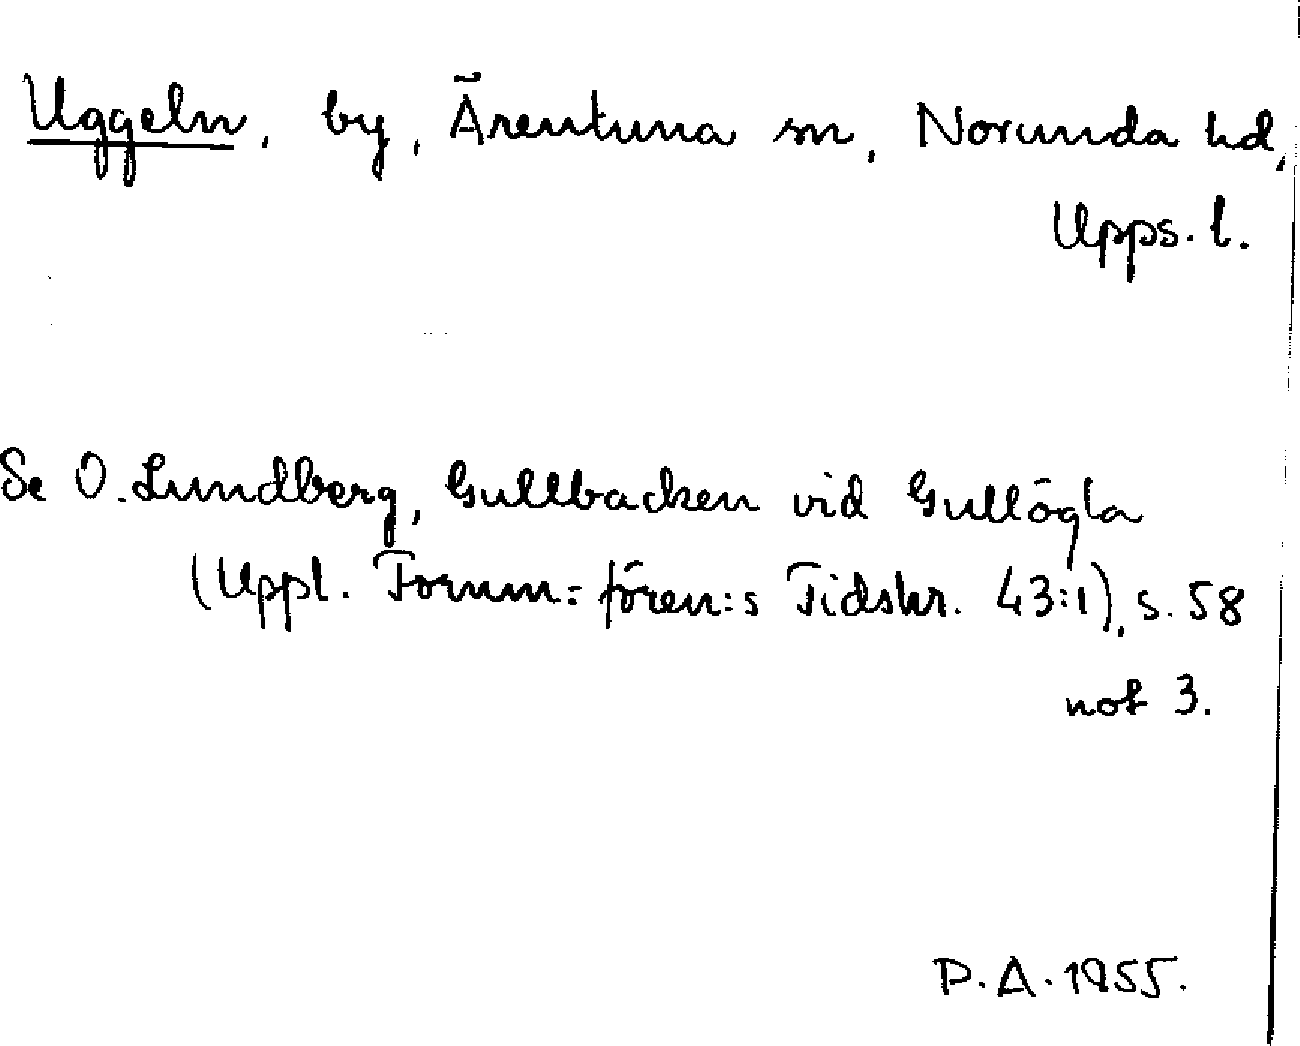 Uggeln, by, Ärentuna sn, Norunda hd,
Upps. l.
Se O. Lundberg, Gullbacken vid Gullögla
(Uppl. Fornm.-fören:s Tidskr. 43:1), s. 58
not 3.
P.A. 1955.